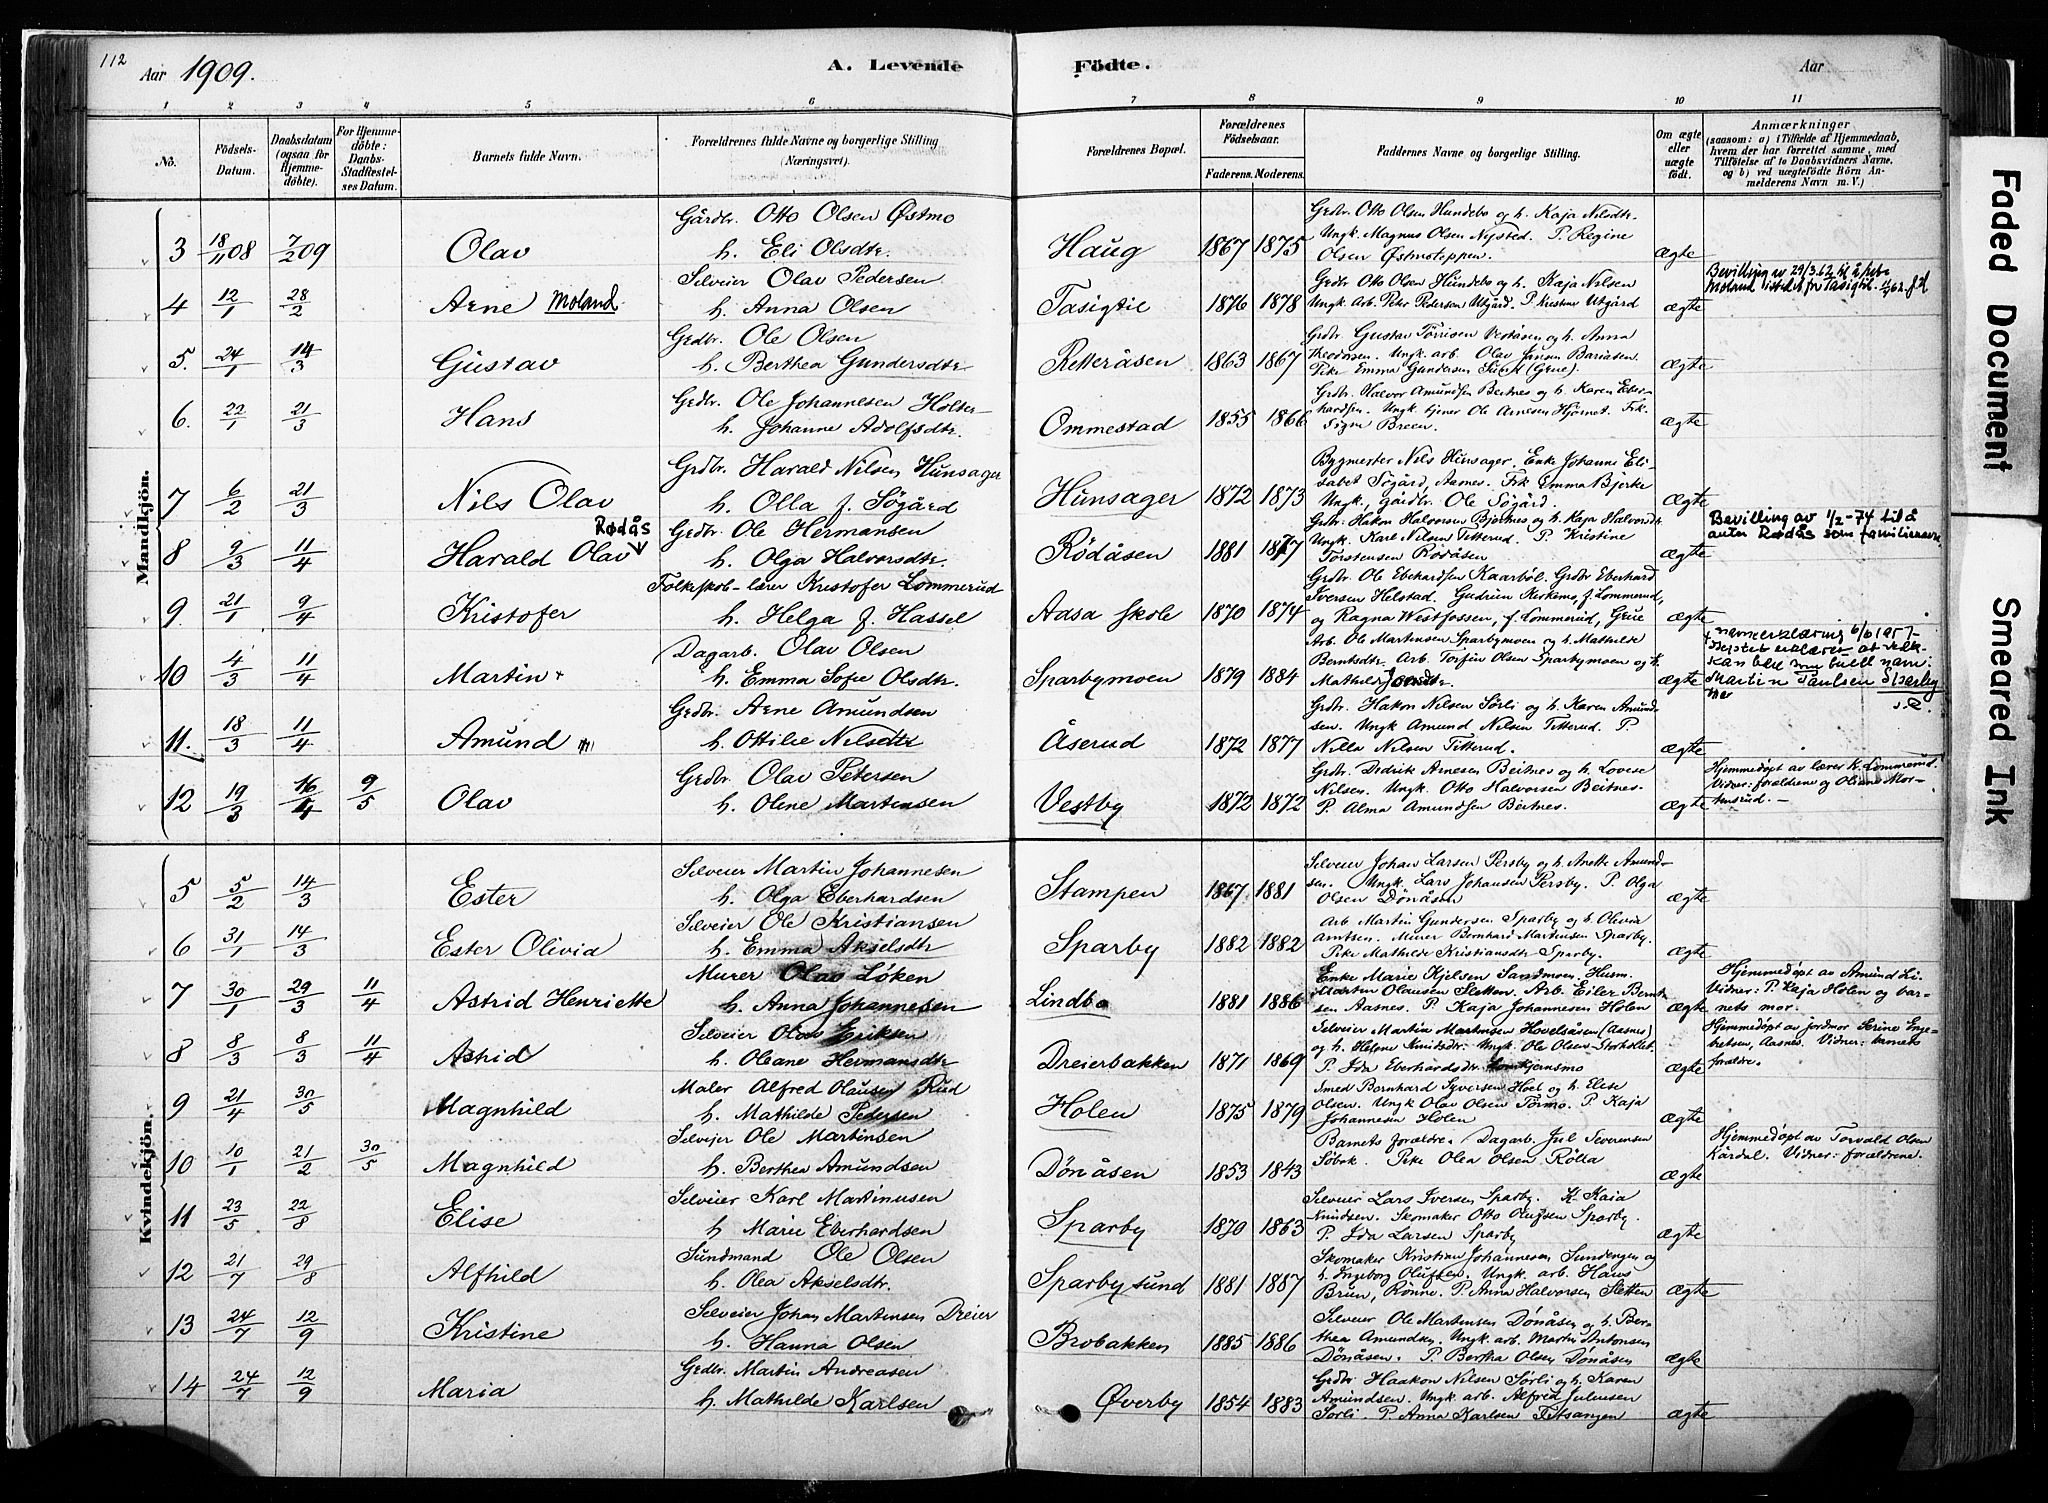 112
Aar 1909.
A. Levende Födte.
Aar
1 2 3 4 5 6 7 8 9 10 11
No.
Födsels-Datum.
Daabsdatum (ogsaa for Hjemmedöbte).
For Hjemmedöbte: Daabs-Stadfæstelses Datum.
Barnets fulde Navn.
Forældrenes fulde Navne og borgerlige Stilling (Næringsvei).
Forældrenes Bopæl.
Forældrenes Födselsaar.
Faderens. Moderens.
Faddernes Navne og borgerlige Stilling.
Om ægte eller uægte födt.
Anmærkninger (saasom: a) i Tilfælde af Hjemmedaab, hvem der har forrettet samme, med Tilföielse af to Daabsvidners Navne, og b) ved uægtefödte Börn Anmelderens Navn m. V.)
Mandkjön.
3 18/11 08 7/2 09 Olav
Gårdbr. Otto Olsen Østmo
h. Eli Olsdtr.
Haug 1867 1875
Grdbr. Otto Olsen Hundebo og h. Kaja Nilsdtr.
Ungk. Magnus Olsen Nysted. P. Regine
Olsen Østmoteppen. ægte
4 12/1 28/2 Arne Moland
Selveier Olav Pedersen
h. Anna Olsen
Tasigtil 1876 1878
Grdbr. Otto Olsen Hundebo og h. Kaja Nilsen
Ungk. Arb. Peter Pedersen Utgård. P. Kristine Utgård ægte
Bevilling av 29/3.62 til å hete
Moland istedet for Tasigtil.
5. 24/1 14/3 Gustav
Grdbr. Ole Olsen
h. Berthea Gundersdtr.
Retteråsen 1863 1867
Grdbr. Gustav Törrisen Veståsen og h. Anna
Theodorsen. Ungk. arb. Olav Jansen Bariåsen.
Pike Emma Gundersen (Grue). ægte
6. 22/1 21/3 Hans
Grdbr. Ole Johannesen Holter
h. Johanne Adolfsdtr.
Ommestad 1855 1866
Grdbr. Halvor Amundsen Beitnes og h. Karen Eberhardsen. Ungk. tjener Ole Arnesen Hjörnet. Frk.
Signe Breen. ægte
7 6/2 21/3 Nils Olav
Grdbr. Harald Nilsen Hunsager
h. Olla f. Sögård
Hunsager 1872 1873
Bygmester Nils Hunsager. Enke Johanne Elisabet Sögård, Aasnes. Frk Emma Bjerke
Ungk. gårdbr. Ole Sögård. ægte
8 9/3 11/4 Harald Olav Rødås
Grdbr. Ole Hermansen
h. Olga Halvorsdtr.
Rödåsen 1881 1877
Grdbr. Hakon Halvorsen Bjertnes og h. Kaja Halvorsdtr.
Ungk. Karl Nilsen Titterud. P. Kristine
Torstensen Rödåsen. ægte
Bevilling av 1/2-74 til å
anta Rødås som familienavn.
9. 21/1 9/4 Kristofer
Folkeskole-lærer Kristofer Lommerud
h. Helga f. Hassel
Aasa skole 1870 1874
Grdbr. Ole Eberhardsen Kaarböl. Grdbr Eberhard
Iversen Helstad. Gudrun f. Lommerud,
og Ragna Westfossen, f. Lommerud, Grue ægte
10 4/3 11/4 Martin +
Dagarb. Olav Olsen
h. Emma Sofie Olsdtr.
Sparbymoen 1879 1884
Arb. Ole Martinsen Sparbymoen og h. Mathilde
Berntsdtr. Arb. Torfin Olsen Sparbymoen og h.
Mathilde ægte
+ navneerklæring 6/6 1957
kan bli som fullt navn:
Martin Paulsen Sparby
11. 18/3 11/4 Amund
Grdbr. Arne Amundsen
h. Ottilie Nilsdtr
Åserud 1872 1877
Grdbr. Hakon Nilsen Sörli og h. Karen Amundsen. Ungk Amund Nilsen Titterud. P.
Nilla Nilsen Titterud. ægte
12 19/3 16/4 9/5 Olav
Grdbr. Olav Petersen
h. Olene Martinsen
Vestby 1872 1872
Grdbr. Didrik Arnesen Beitnes og h. Lovise
Nilsen. Ungk. Otto Halvorsen Beitnes.
P. Alma Amundsen Beitnes. ægte
Hjemmedöpt av lærer K. Lommerud.
Vidner: forældrene og Oliane Mortensrud.
Kvindekjön.
5 5/2 14/3 Ester
Selveier Martin Johannesen
h. Olga Eberhardsen
Stampen 1867 1881
Selveier Johan Larsen Persby og h. Anette Amundsen. Ungk. Lars Johansen Persby. P. Olga
Olsen Dönåsen ægte
6 31/1 14/3 Ester Olivia
Selveier Ole Kristiansen
h. Emma Akselsdtr
Sparby 1882 1882
Arb. Martin Gundersen Sparby og h. Olivia
Arntsen. Murer Bernhard Martinsen Sparby.
Pike Mathilde Kristiansdtr Sparby. ægte
7 30/1 29/3 11/4 Astrid Henriette
Murer Olav Löken
h. Anna Johannesen
Lindbo 1881 1886
Enke Marie Kjelsen Sandmoen. Husm.
Martin Olausen Sletten. Arb. Eiler Berntsen Aasnes. P. Kaja Johannesen Holen ægte
Hjemmedöpt av Amund Li.
Vidner: P. Kaja Holen og barnets mor.
8 8/3 8/3 11/4 Astrid
Selveier Olav Eriksen
h. Oleane Hermansdtr
Dreierbakken 1871 1869
Selveier Martin Martinsen Hovelsåsen (Aasnes)
og h. Helene Knudsdtr. Ungk. Ole Olsen Storholtet.
P. Ida Eberhardsdtr ægte
Hjemmedöpt av jordmor Serine Engebretsen, Aasnes. Vidner: barnets
forældre.
9 21/4 30/5 Magnhild
Maler Alfred Olausen Rud
h. Mathilde Pedersen
Holen 1875 1879
Smed Bernhard Syversen Hoel og h. Elise
Olsen. Ungk Olav Olsen Törmo. P Kaja
Johannesen Holen ægte
10 10/1 21/2 30/5 Magnhild
Selveier Ole Martinsen
h. Berthea Amundsen
Dönåsen 1853 1843
Barnets forældre. Dagarb. Jul Severensen
Söbok. Pike Olea Olsen Rölla ægte
Hjemmedöpt av Torvald Olsen
Kårdal. Vidner: forældrene.
11 23/5 22/8 Elise
Selveier Karl Martinusen
h Marie Eberhardsen
Sparby 1870 1863
Selveier Lars Iversen Sparby. K. Kaia
Knudsen. Skomaker Otto Olufsen Sparby.
P. Ida Larsen Sparby ægte
12 21/7 29/8 Alfhild
Sundmand Ole Olsen
h. Olea Akselsdtr.
Sparby sund 1881 1887
Skomaker Kristian Johannesen Sundengen og
h. Ingeborg Olufsen. Ungk. arb. Hans
Bruen, Rönne. P. Anna Halvorsen Sletten ægte
13 24/7 12/9 Kristine
Selveier Johan Martinsen Dreier
h. Hanna Olsen
Brobakken 1885 1886
Selveier Ole Martinsen Dönåsen og h. Berthea Amundsen. Ungk. arb. Martin Antonsen
Dönåsen. P. Bertha Olsen Dönåsen ægte
14 24/7 12/9 Maria
Grdbr. Martin Andreasen
h. Mathilde Karlsen
Øverby 1854 1883
Grdbr Haakon Nilsen Sörli og h. Karen
Amundsen. Ungk arb. Alfred Juliusen
Sörli. P. Anna Karlsen Titsangen ægte
Faded Document
Smeared Ink